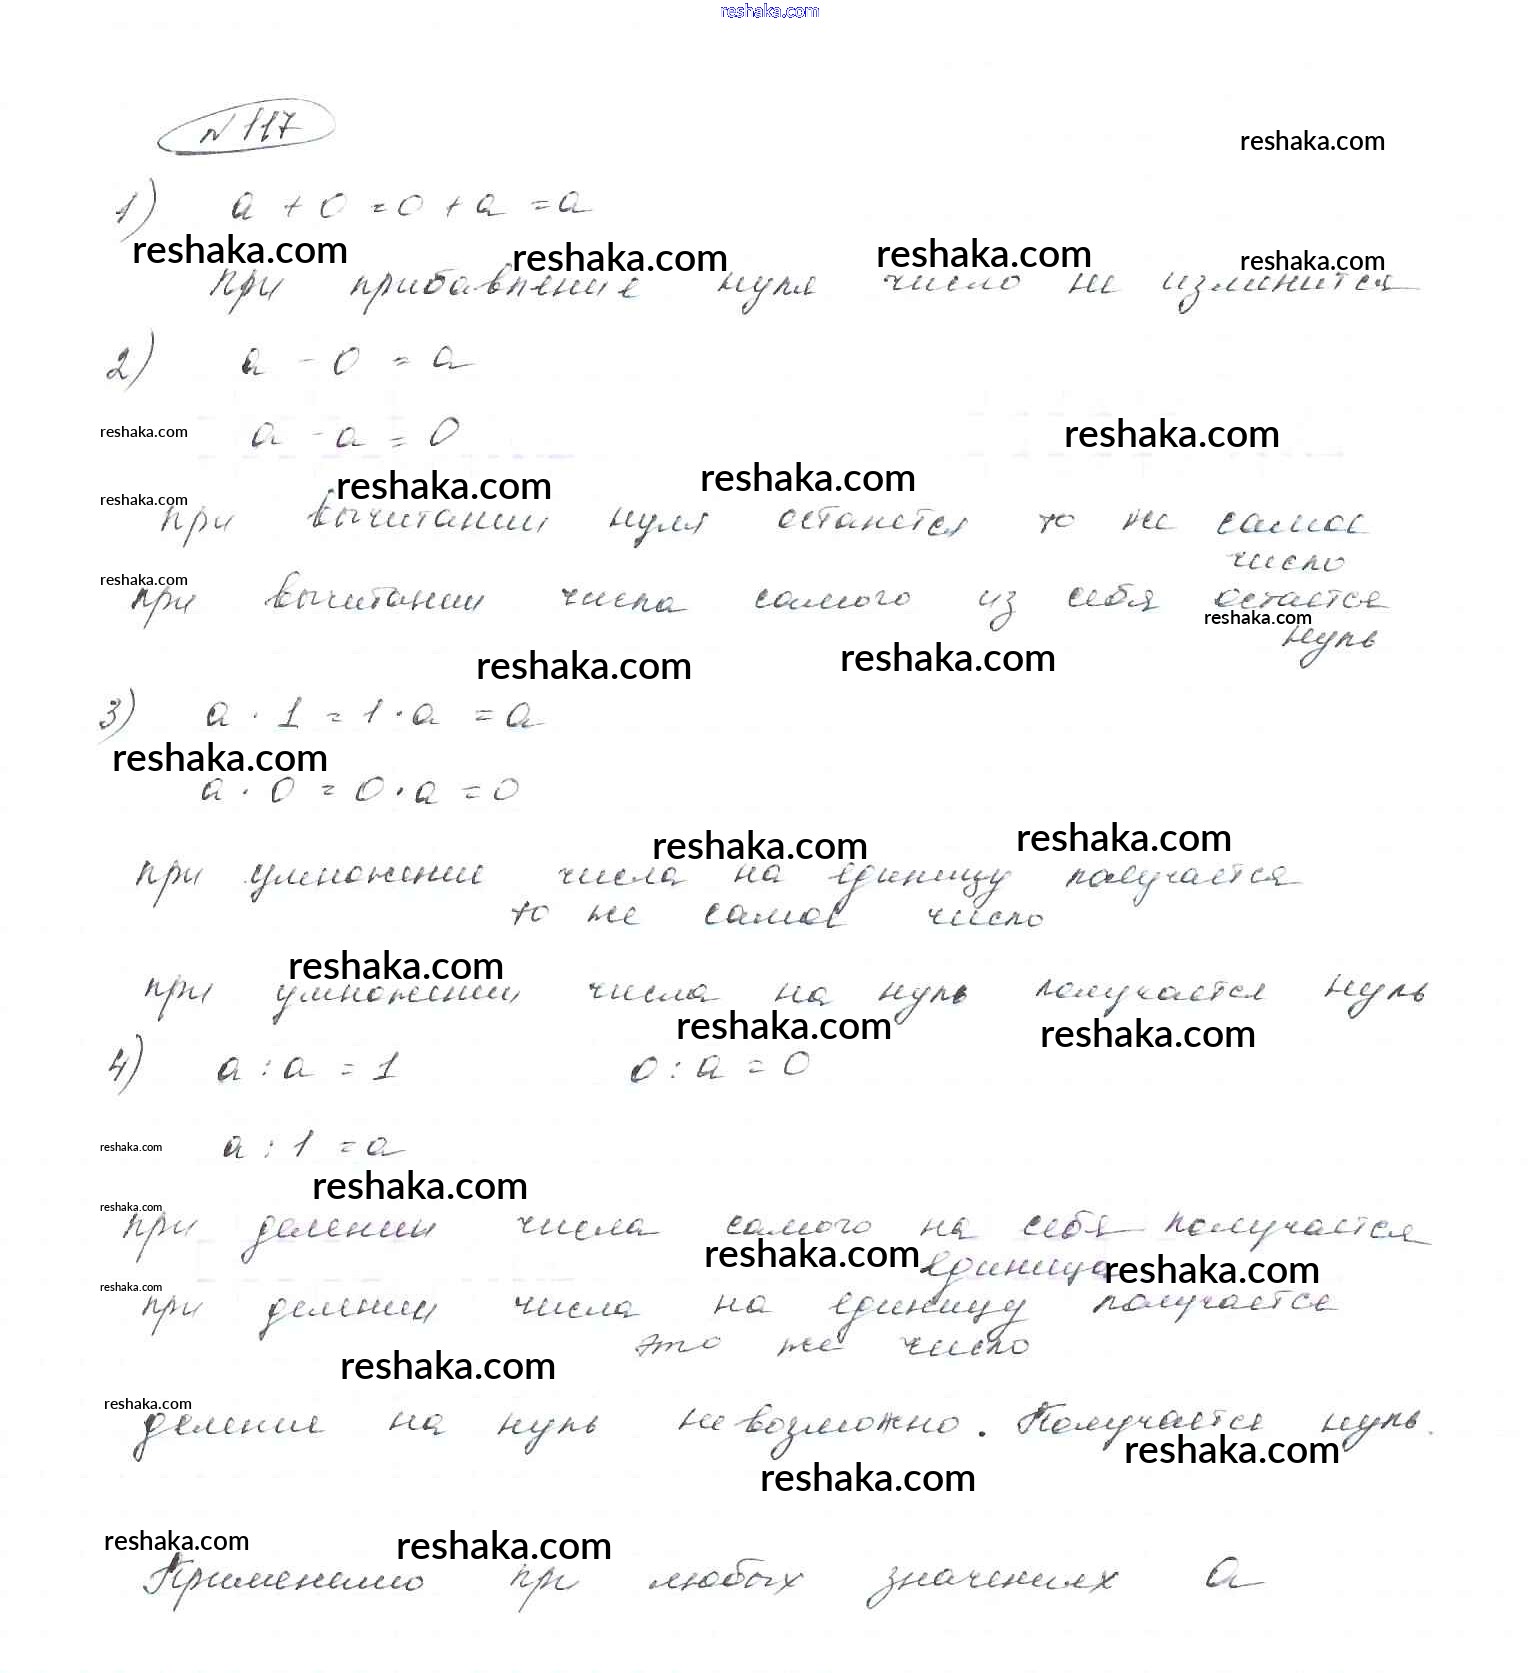 reshaka.com
№ 117
reshaka.com
1) a + 0 = 0 + a = a
reshaka.com reshaka.com reshaka.com reshaka.com
при прибавление нуля число не изменится
2) a - 0 = a
reshaka.com a - a = 0 reshaka.com
reshaka.com reshaka.com reshaka.com
при вычитании нуля останется то же самое
число
reshaka.com
при вычитании числа самого из себя остается
reshaka.com
нуль
reshaka.com reshaka.com
3) a · 1 = 1 · a = a
reshaka.com
a · 0 = 0 · a = 0
reshaka.com reshaka.com
при умножение числа на единицу получается
то же самое число
reshaka.com
при умножении числа на нуль получается нуль
reshaka.com reshaka.com
4) a : a = 1 0 : a = 0
reshaka.com a : 1 = a
reshaka.com
reshaka.com
при делении числа самого на себя получается
reshaka.com единица reshaka.com
reshaka.com
при делении числа на единицу получается
это же число
reshaka.com
reshaka.com
деление на нуль невозможно. Получается нуль.
reshaka.com reshaka.com
reshaka.com reshaka.com
Применимо при любых значениях a